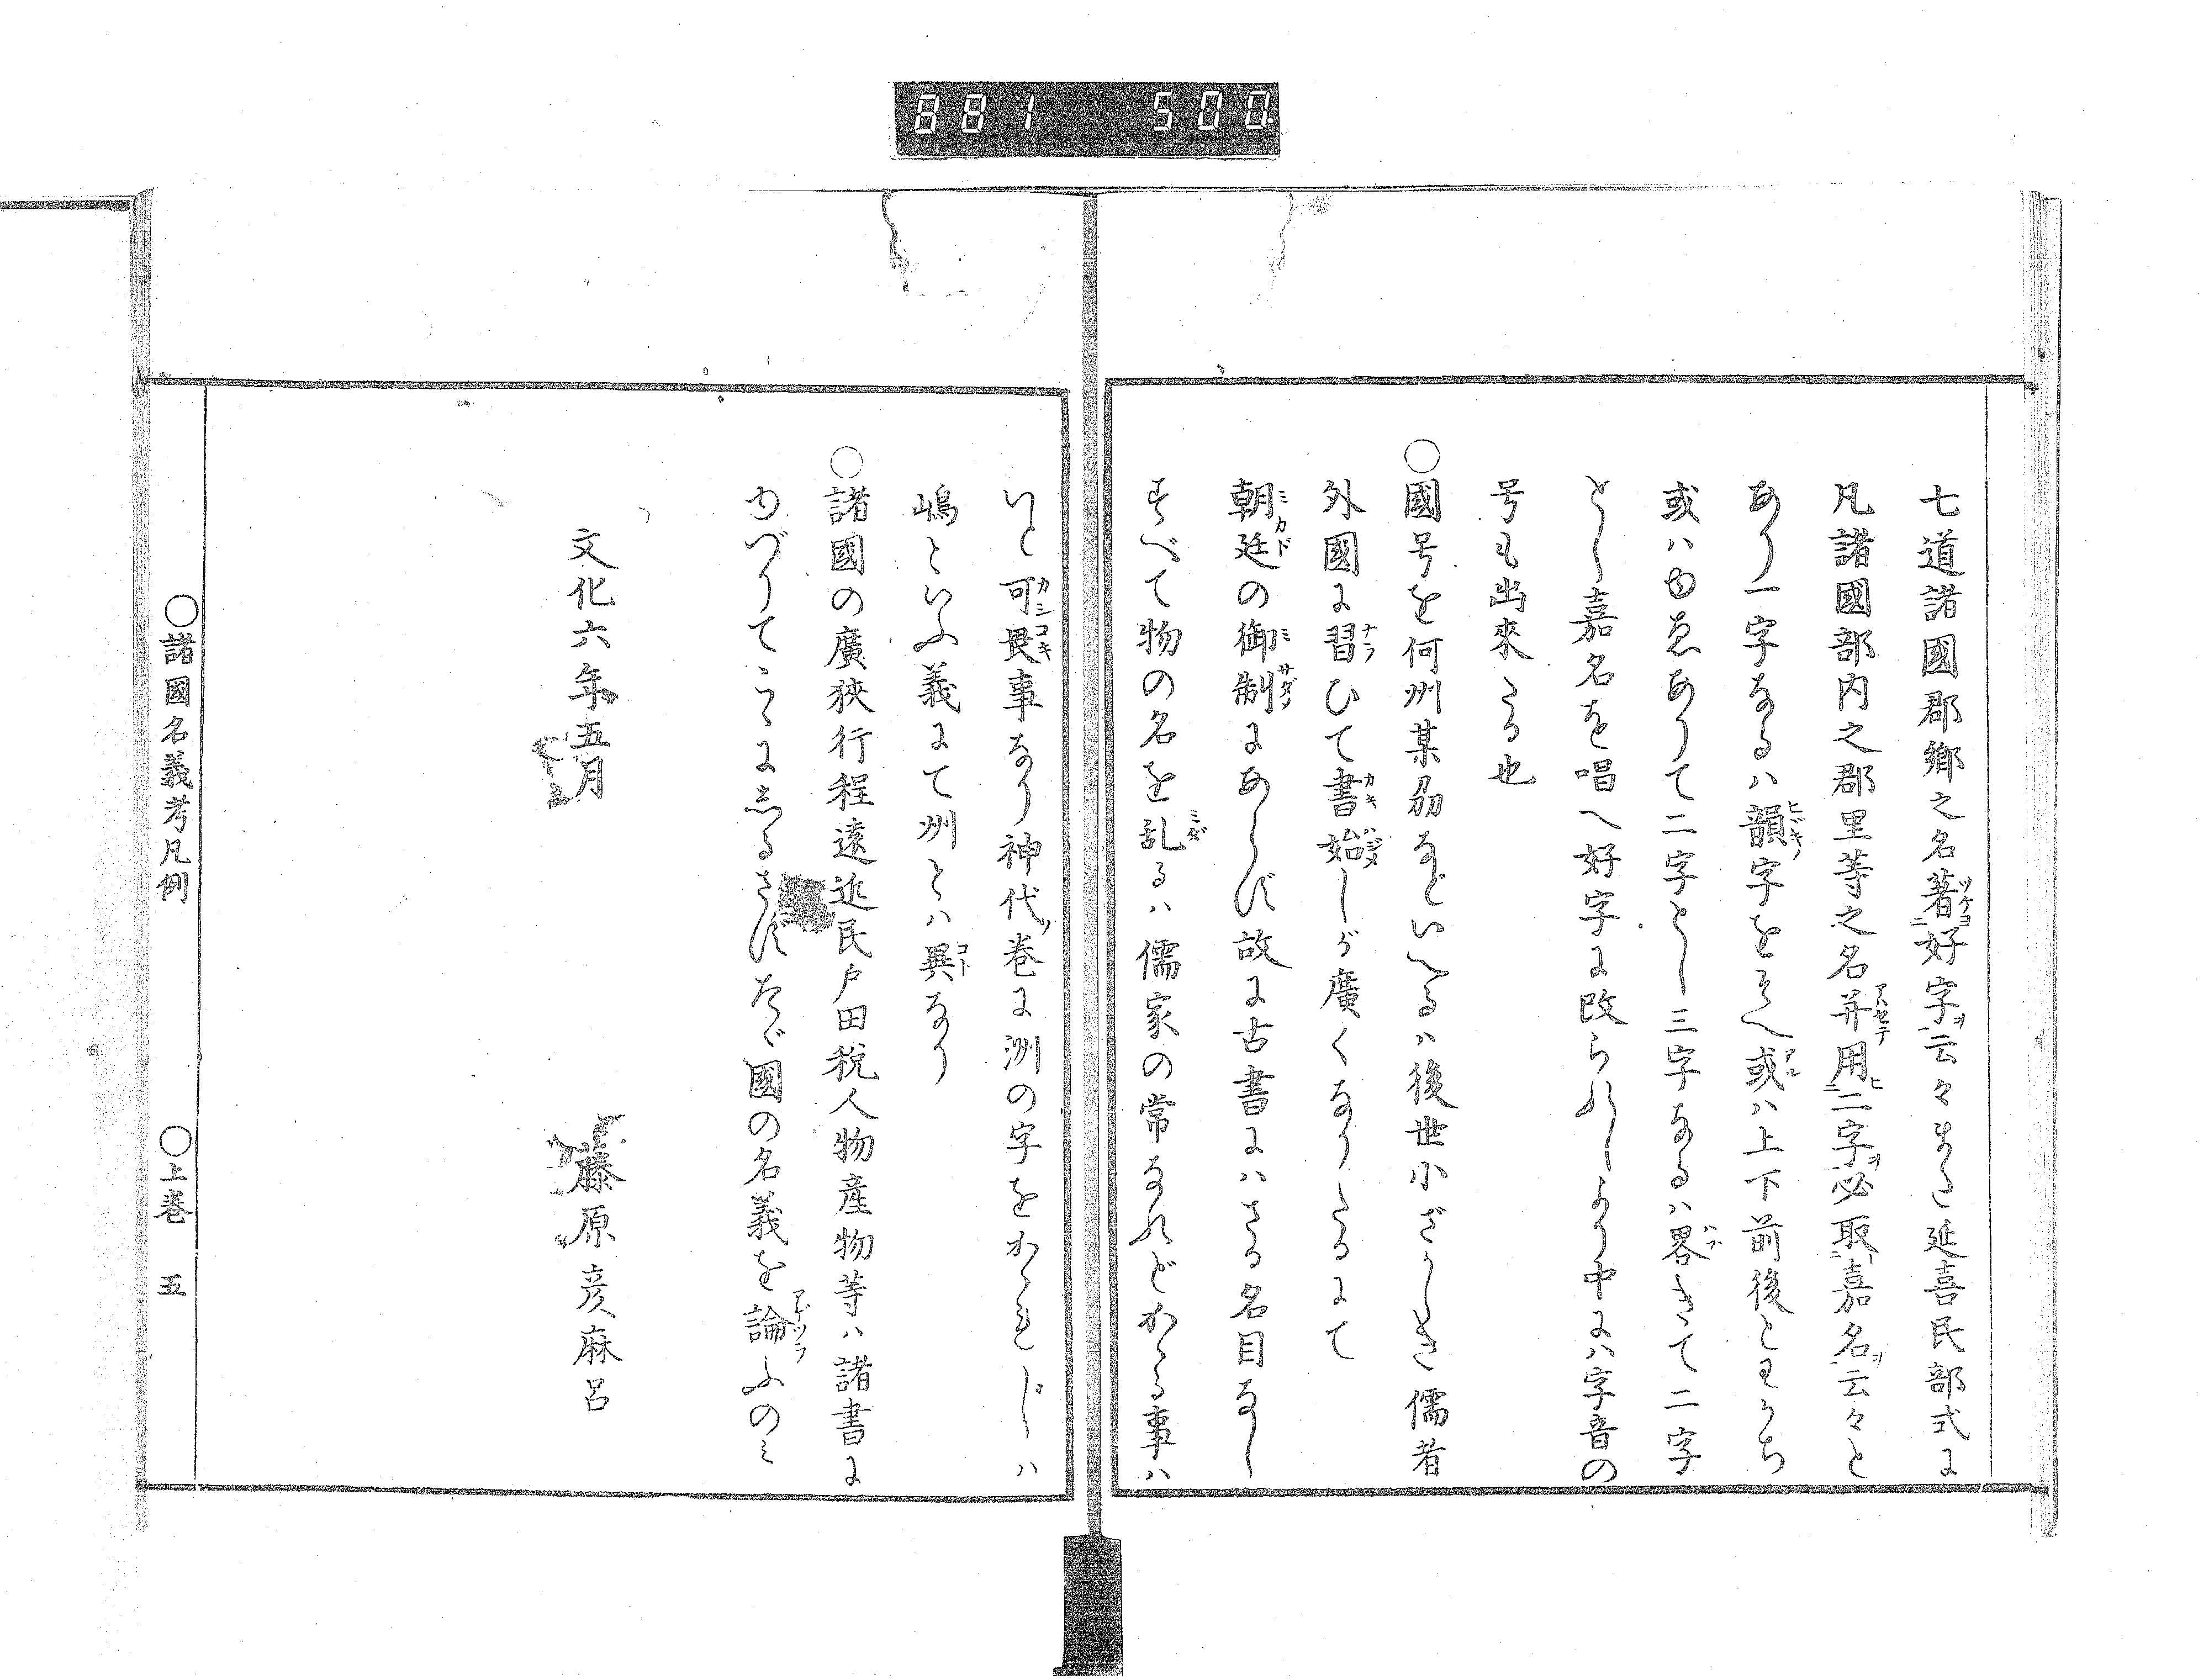 881 500
七道諸國郡鄉之名著好字云々また延喜民部式に
凡諸國部内之郡里等之名并用二字必取嘉名云々と
あり一字なるハ韻字をそへ或ハ上下前後とわかち
或ハゆゑありて二字とし三字なるハ畧きて二字
とし嘉名を唱へ好字に改られしより中にハ字音の
号も出來たる也
○國号を何州某刕などいへるハ後世小ざかしき儒者
外國に習ひて書始しが廣くなりたるにて
朝廷の御制にあらず故に古書にハさる名目なし
すべて物の名を乱るハ儒家の常なれどかゝる事ハ
いと可畏事なり神代巻に洲の字をかゝれしハ
嶋といふ義にて州とハ異なり
○諸國の廣狹行程遠近民戸田税人物産物等ハ諸書に
ゆづりてこゝにしるさずたゞ國の名義を論ふのミ
文化六年五月
藤原彦麻呂
○諸國名義考凡例 ○上巻 五